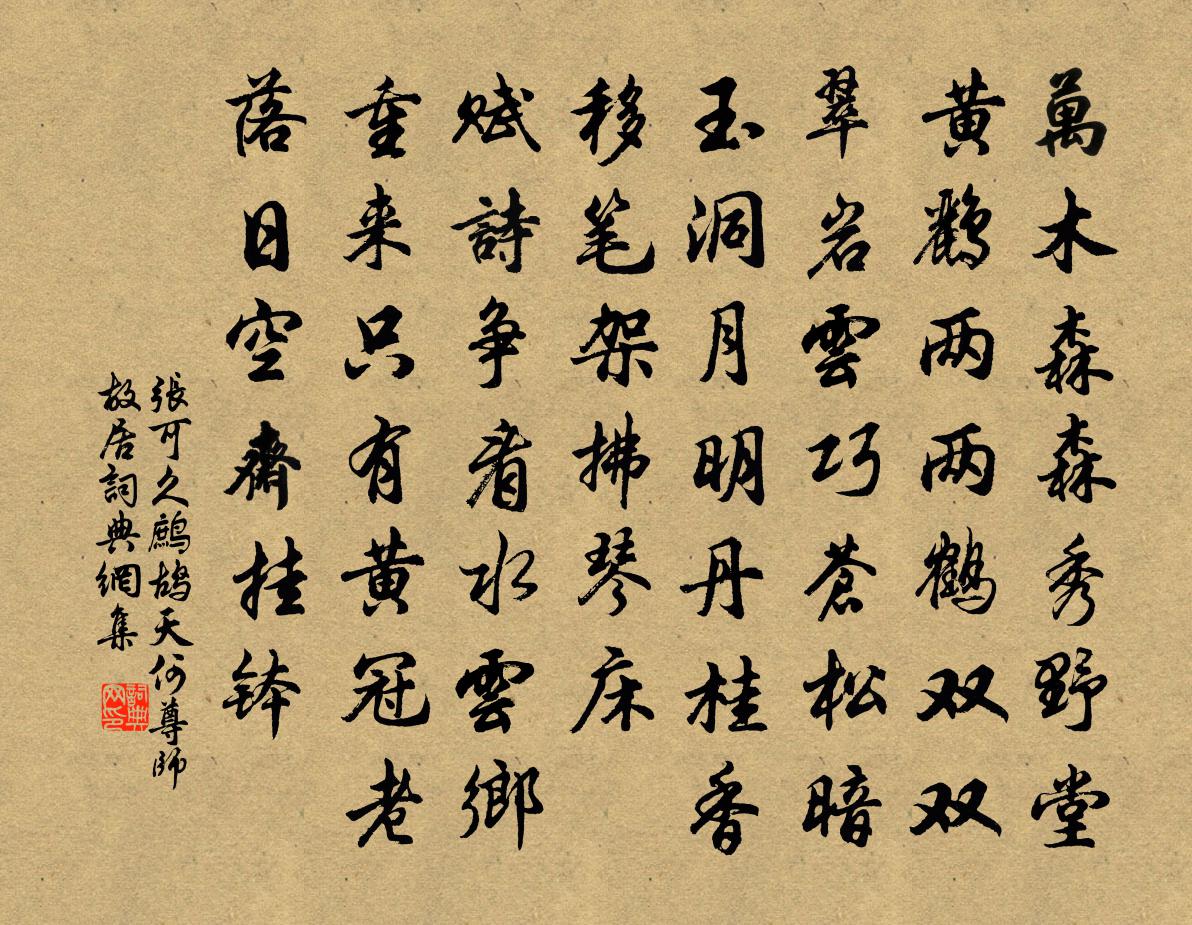 萬木森森秀野堂
黄两两鹤双双
翠岩雲巧苍松暗
玉洞月明丹桂香
移笔架拂琴床
赋詩争看水雲鄉
重来只有黄冠老
落日空齋挂钵
張可久鷓鴣天何尊師
故居詞典網集
詞典网印